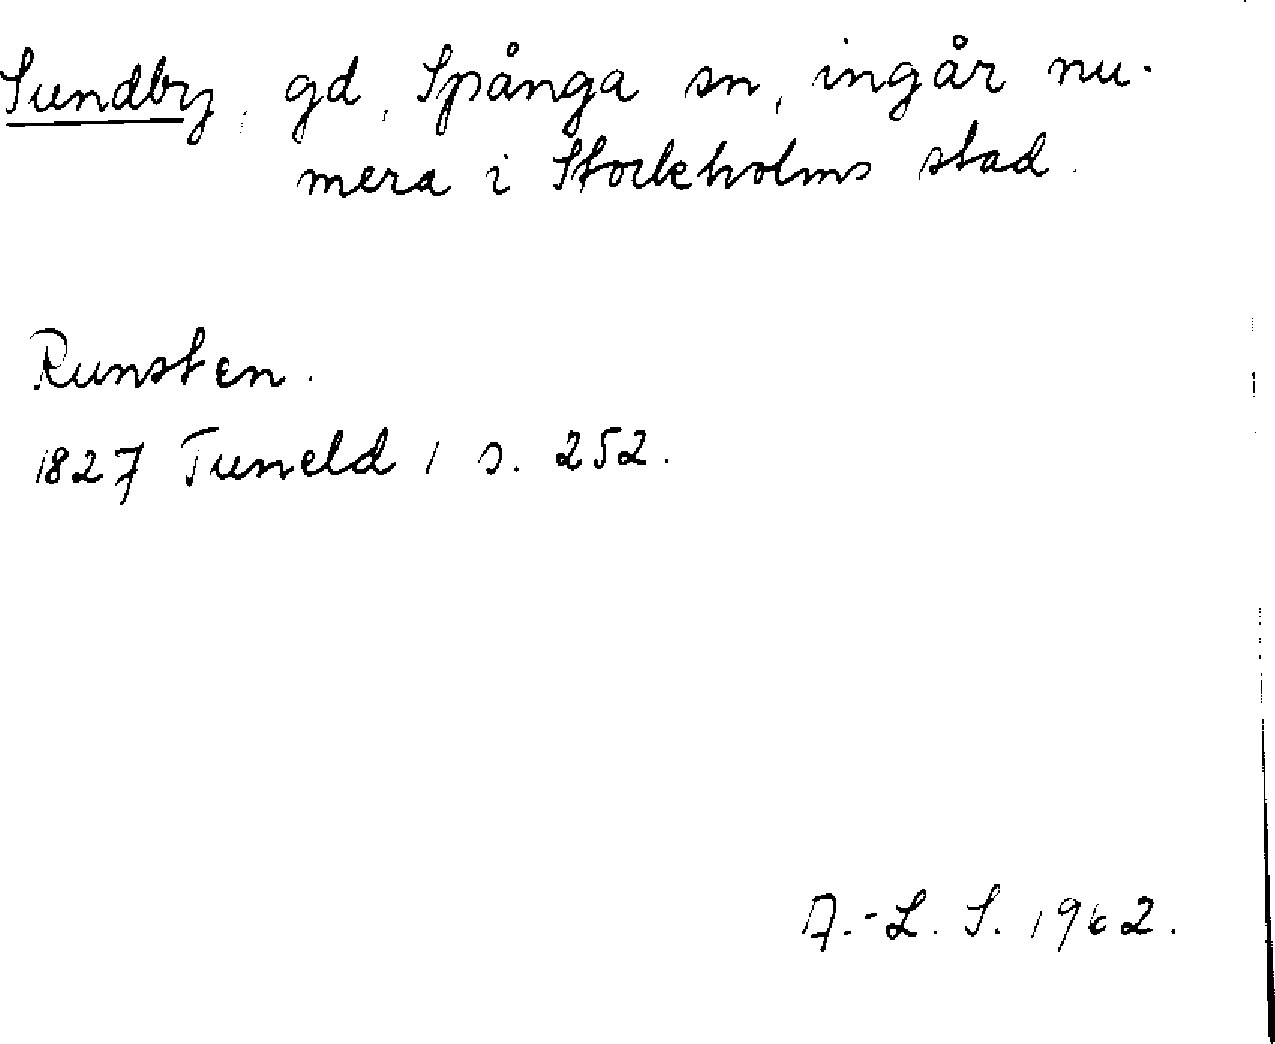 Sundby, gd, Spånga sn, ingår nu-
mera i Stockholms stad.
Runsten.
1827 Tuneld 1 s. 252.
A.-L. S. 1962.